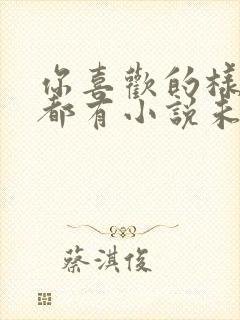 你喜歡的樣
都有小說未
蔡淇俊